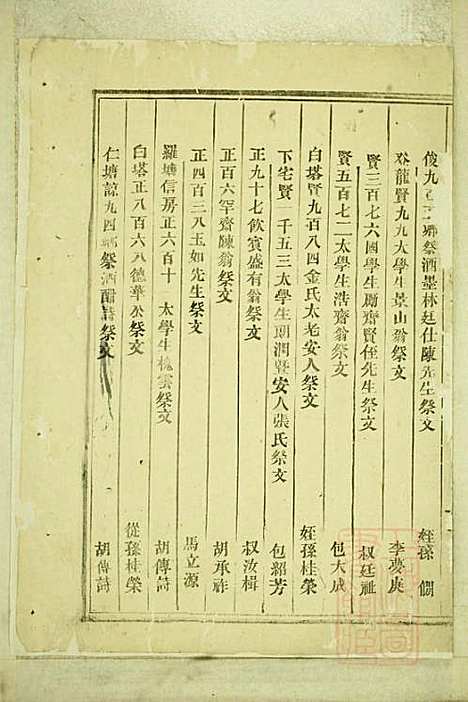 俊九 鄉祭酒墨林廷仕陳先生祭文 姪孫
龍賢九九大學生景山翁祭文 李夢庚
賢三百七六國學生勵齋賢侄先生祭文 叔廷祉
賢五百七二太學生浩齋翁祭文 包大成
白塔賢九百八四金氏太老安人祭文 姪孫桂榮
下宅賢一千五三太學生朗潤暨安人張氏祭文 包紹芳
正九十七飲賓盛有翁祭文 叔汝楫
正百六罕齋陳翁祭文 胡承祚
正四百三八玉如先生祭文 馬立源
羅塘信房正六百十 太學生槐雲祭文 胡傳詩
白塔正八百六八德華公祭文 從孫桂榮
仁塘諒九四鄉祭酒 祭文 胡傳詩